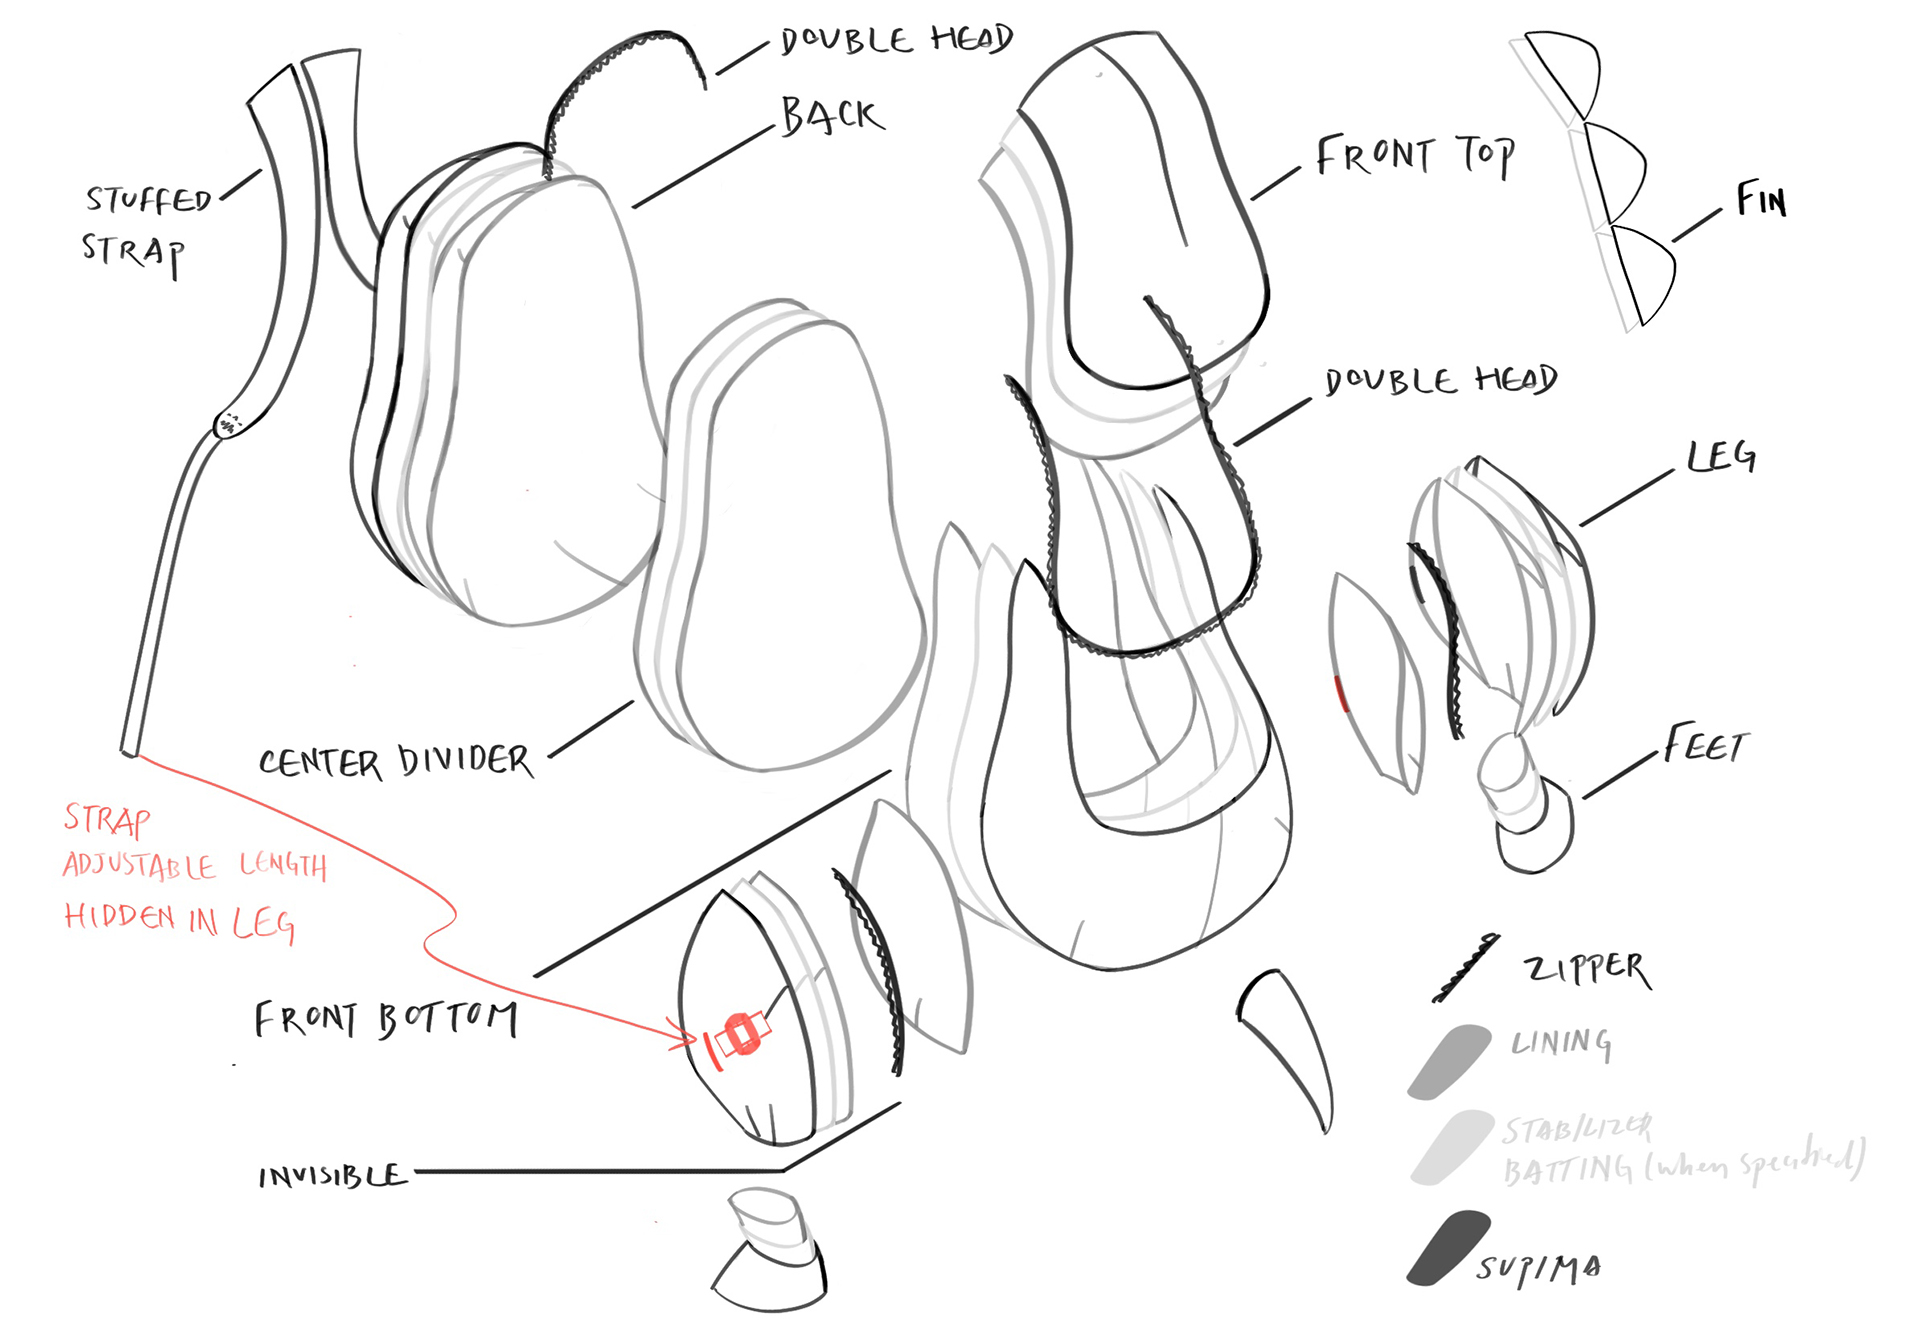 DOUBLE HEAD
BACK
STUFFED
STRAP
FRONT TOP
FIN
DOUBLE HEAD
LEG
FEET
CENTER DIVIDER
STRAP
ADJUSTABLE LENGTH
HIDDEN IN LEG
FRONT BOTTOM
INVISIBLE
ZIPPER
LINING
STABILIZER
BATTING (when specified)
SUPIMA